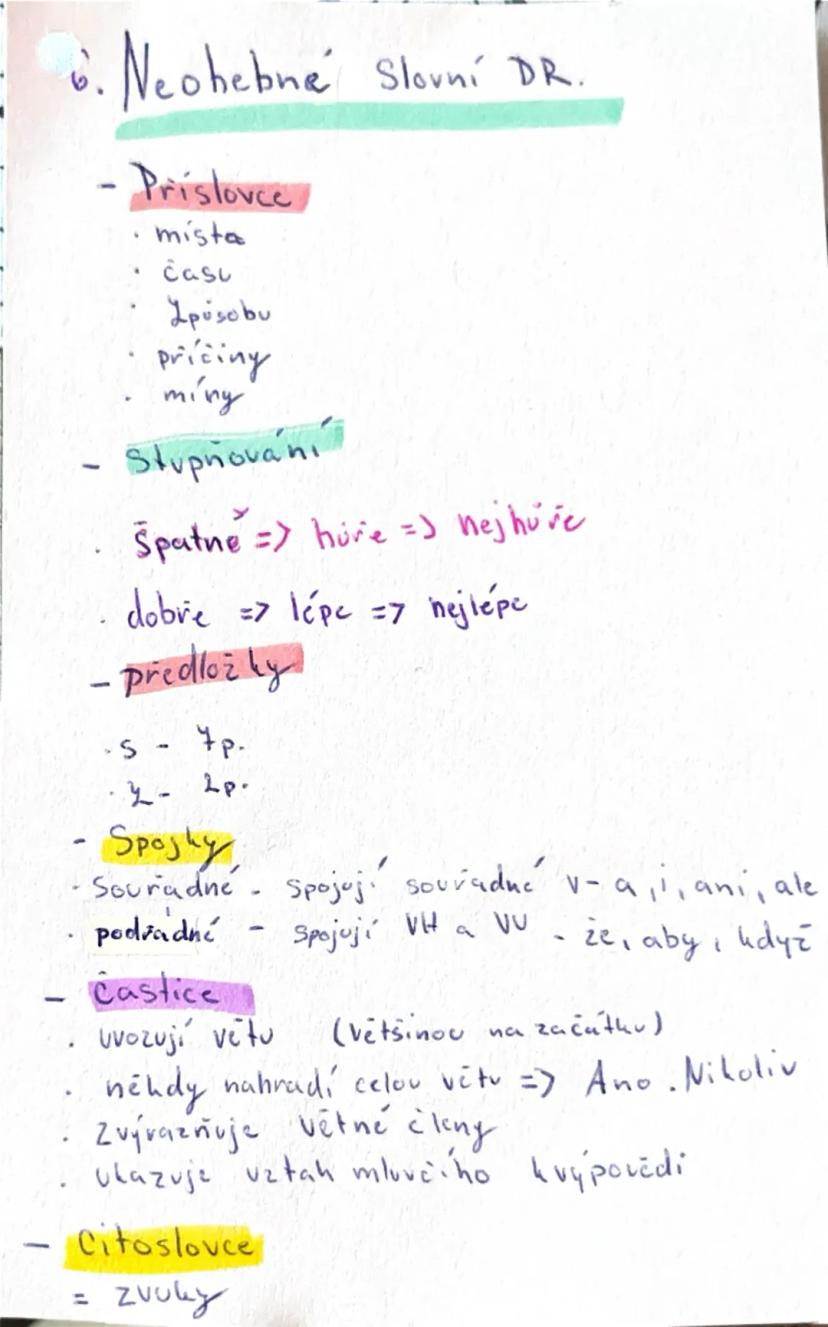 6. Neohebné slovní DR.
- Příslovce
· místa
· času
· způsobu
· příčiny
· míry
- Stupňování
· špatně => hůře => nejhůře
· dobře => lépe => nejlépe
- předložky
· s - 7p.
· z - 2p.
- Spojky
· Souřadné - spojují souřadné v - a, i, ani, ale
· podřadné - spojují VH a VV - že, aby, když
- častice
· uvozují větu (většinou na začátku)
· někdy nahradí celou větu => Ano. Nikoliv
· zvýrazňuje větné členy
· ukazuje vztah mluvčího k výpovědi
- Citoslovce
= zvuky